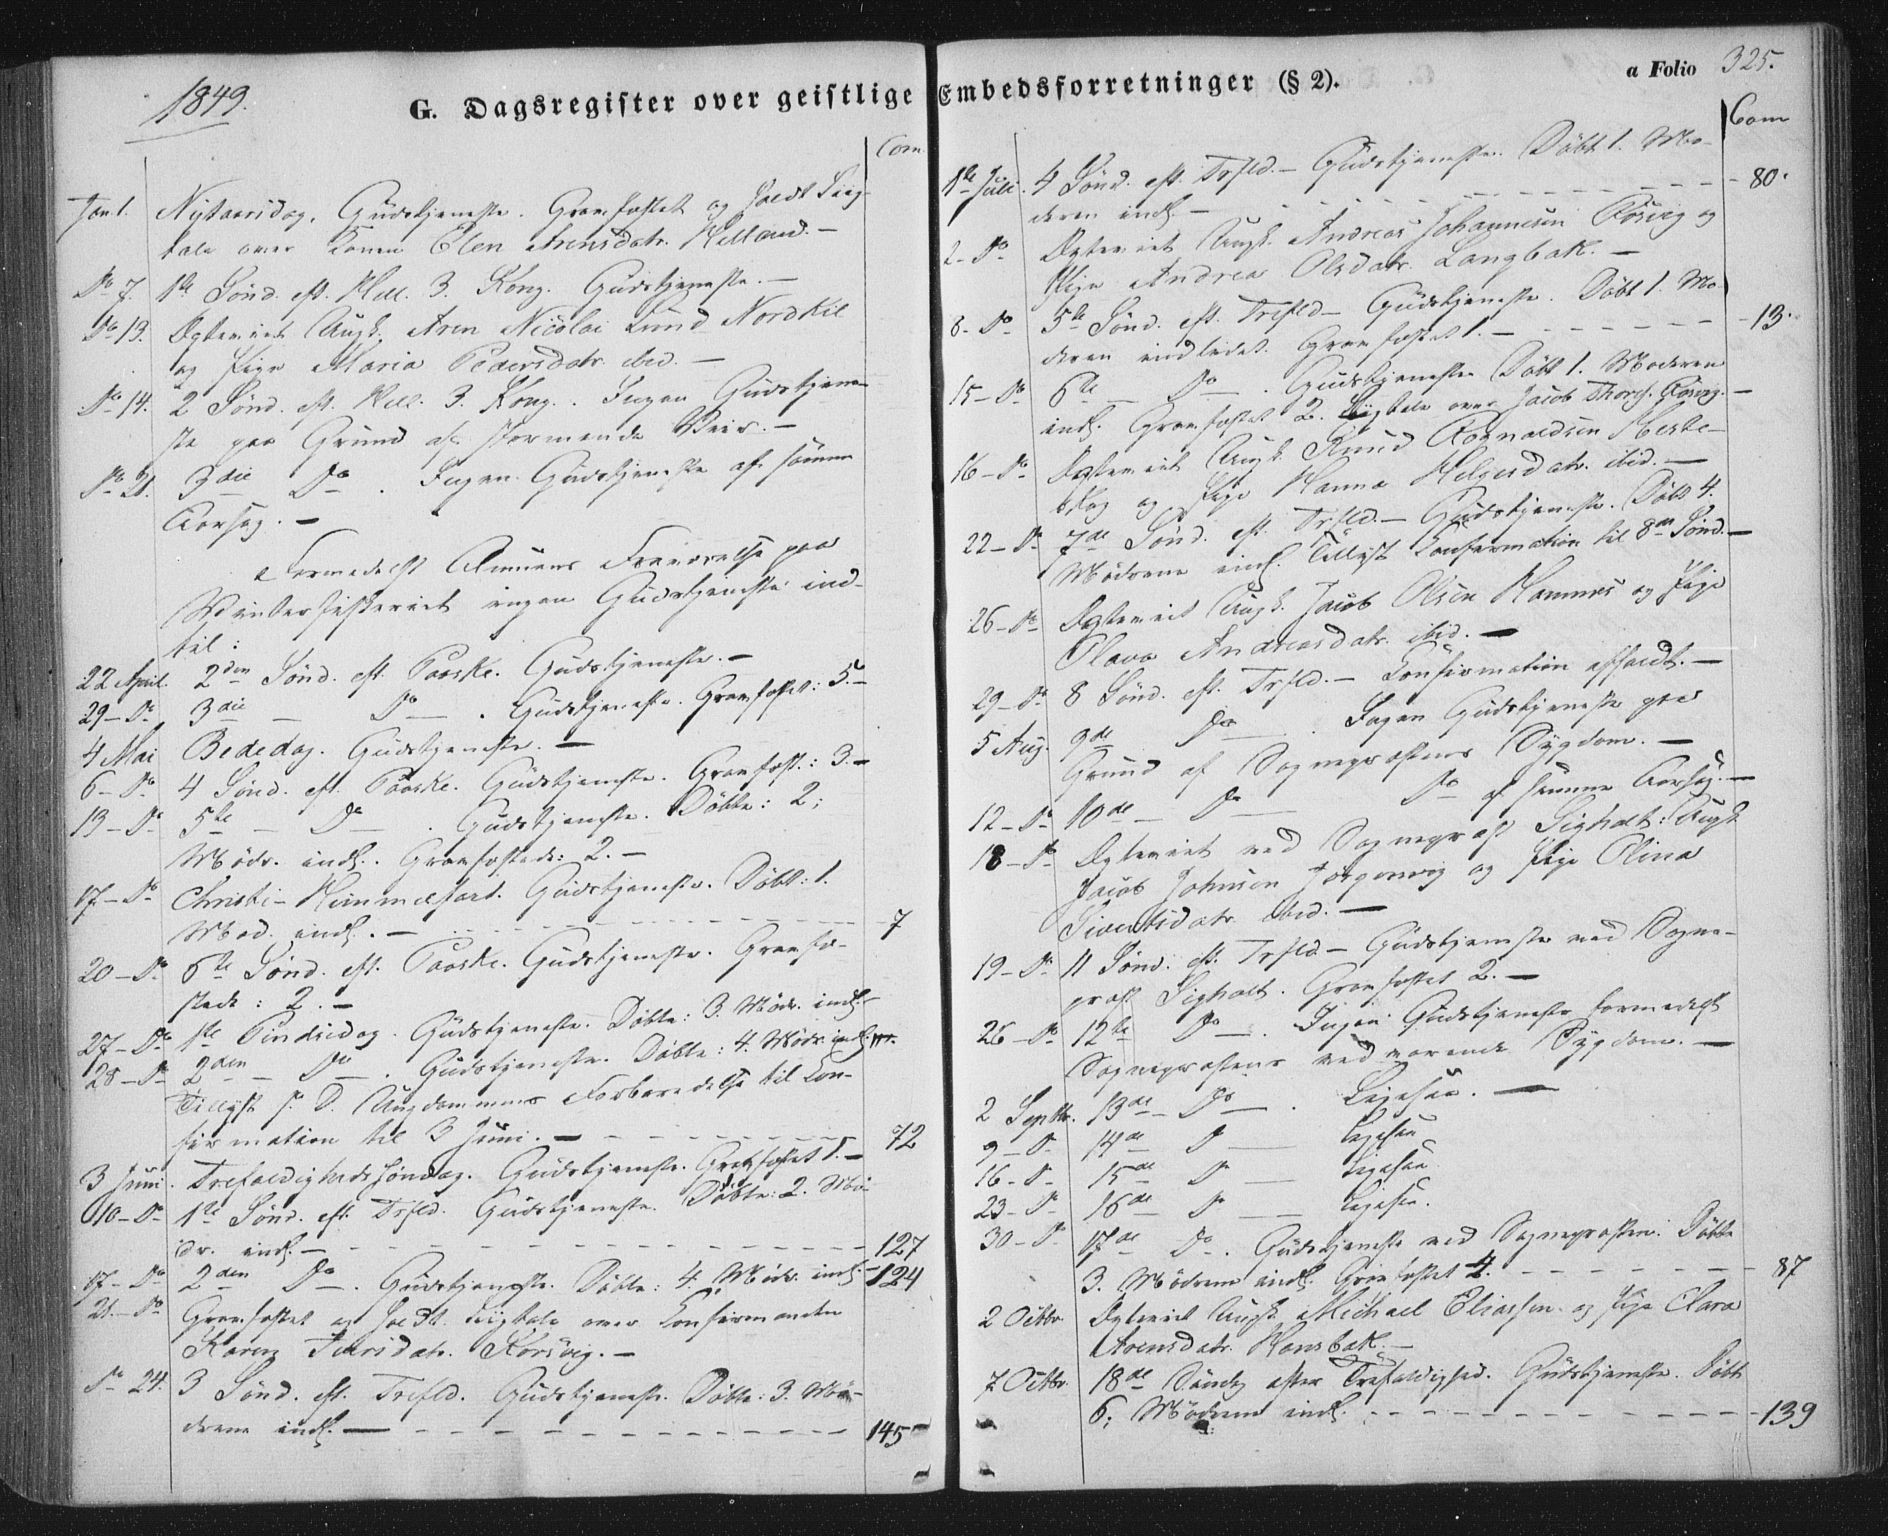 1849.
G. Dagsregister over geistlige Embedsforretninger (§ 2).
a Folio 325.
Com.
Jan 1. Nytaarsdag. Gudstjeneste. Gravfæstet og holdt Liig-
tale over Konen Elen Arensdatr. Helland. —
Do 7. 1ste Sönd. eft. Hell. 3. Kong. Gudstjeneste. —
Do 13. Egteviet Ungk. Aren Nicolai Lund Nordkil
og Pige Maria Pedersdatr. ibid —
Do 14. 2 Sönd. eft. Hell. 3. Kong. Ingen Gudstjene-
ste paa Grund af stormende Veir. —
Do 21. 3die Do . Ingen Gudstjeneste af samme
Aarsag. —
Formedelst Almuens Fraværelse paa
Vinterfiskeriet ingen Gudstjeneste ind-
til:
22 April. 2den Sönd. eft. Paaske. Gudstjeneste. —
29 — Do 3die — Do — . Gudstjeneste. Gravfæstet: 5. —
4 Mai Bededag. Gudstjeneste. —
6 — Do 4 Sönd. eft. Paaske. Gudstjeneste. Gravfæst.: 3. —
13 — Do 5te — Do — . Gudstjeneste. Döbte: 2;
Mödr. indl. Gravfæstede: 2. —
17 — Do Christi-Himmelfart. Gudstjeneste. Döbt: 1.
Mod. indl. — 7
20 — Do 6te Sönd. eft. Paaske. Gudstjeneste. Gravfæ-
stede: 2. —
27 — Do 1ste Pindsedag. Gudstjeneste. Döbte: 3. Mödr. indl. —
28 — Do 2den — Do — . Gudstjeneste. Döbte: 4. Mödr. indl.
Tillyst s. D. Ungdommens Forberedelse til Con-
firmation til 3 Juni. — 72
3 Juni. Trefoldighedssöndag. Gudstjeneste. Gravfæstet 1. —
10 — Do 1ste Sönd. eft. Trfld. Gudstjeneste. Döbte: 2. Mö-
dr. indl. — 127
17 — Do 2den Do — . Gudstjeneste. Döbte: 4. Mödr. indl. — 124
21 — Do Gravfæstet og holdt Liigtale over Konfirmanden
Karen Korsvig. —
Do 24. 3 Sönd. eft. Trefld. Gudstjeneste. Döbte: 3. Mö-
drene indl. — 145
Com
1ste Juli. 4 Sönd. eft. Trfld. — Gudstjeneste. Döbt 1. Mo-
deren indl. — 80.
2 — Do Egteviet Ungk. Andreas Johannesen Korsvig og
Pige Andrea Olsdatr. Langbak. —
8 — Do 5te Sönd. eft. Trefld — Gudstjeneste. Döbt 1. Mo-
deren indledet. Gravfæstet 1. — 13.
15 — Do 6te — Do — . Gudstjeneste Döbt 1. Moderen
indl. Gravfæstet 2. Liigtale over Jacob Korsvig. —
16 — Do Egteviet Ungk. Knud Rognaldsen Heste-
og Pige Hanna ibid. —
22 — Do 7de Sönd. eft. Trfld. — Gudstjeneste. Döbt 4.
Mödrene indl. Tillyst Confirmation til 8de Sönd. —
26 — Do Egteviet Ungk. Jacob Olsen Hamnes og Pige
Olava Andreasdatr. ibid. —
29 — Do 8 Sönd. eft. Trfld. — Confirmation afholdt. —
5 Aug. 9de Do — . Ingen Gudstjeneste paa
Grund af Sognepræstens Sygdom. —
12 — Do 10de — Do — Do af samme Aarsag. —
18 — Do Egteviet ved Sognepræst Sigholt: Ungk
Jacob Johnsen og Pige Olina
Sivertsdatr ibid. —
19 — Do 11 Sönd. eft. Trfld — Gudstjeneste ved Sogne-
præst Sigholt. Gravfæstet 2. —
26 — Do 12te Do — . Ingen Gudstjeneste formedelst
Sognepræstens vedvarende Sygdom. —
2 Septbr. 13de — Do — . Ligesaa. —
9 — Do 14de Do — Ligesaa
16 — Do 15de Do — Ligesaa
23 — Do 16de Do — Ligesaa.
30 — Do 17de Do — . Gudstjeneste ved Sognepræsten. Döbte
3. Mödrene indl. Gravfæstet 4. — 87
2 Octbr. Egteviet Ungk. Michael Eliassen og Pige Clara
Arensdatr. Hansbak. —
7 Octbr. 18de Söndag efter Trefoldighed. Gudstjeneste. Döbt
6; Mödrene indl. — 139